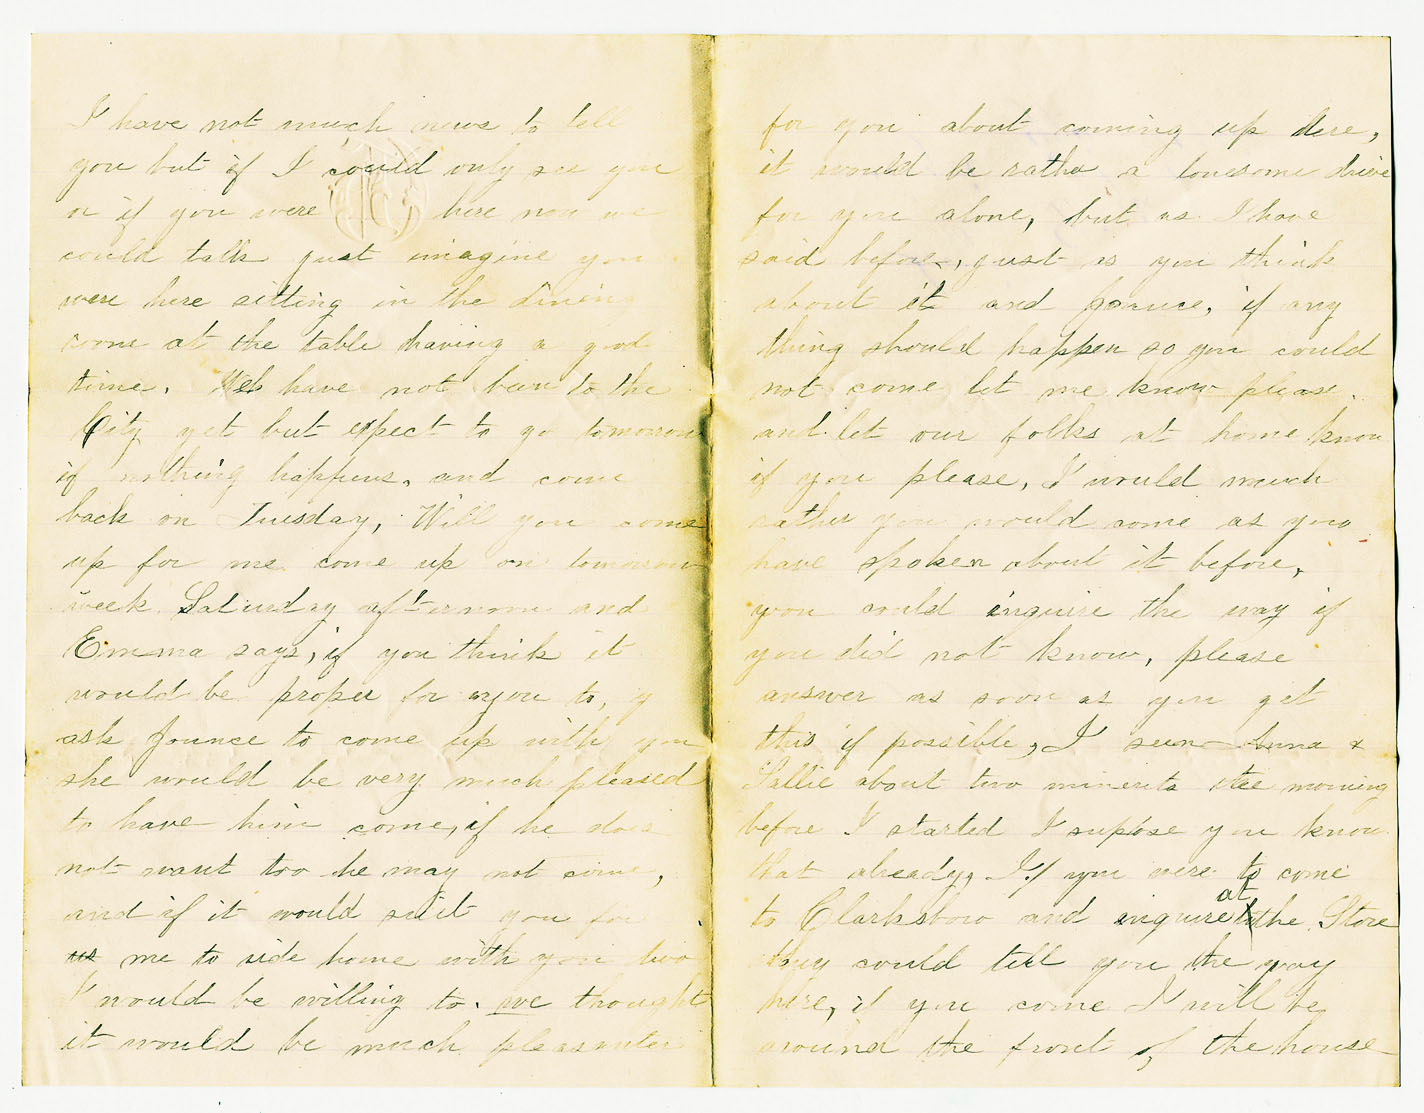 I have not much news to tell
you but if I could only see you
or if you were here now we
could talk just imagine you
were here sitting in the dining
room at the table having a good
time. We have not been to the
City yet but expect to go tomorrow
if nothing happens, and come
back on Tuesday, Will you come
up for me come up on tomorrow
week Saturday afternoon and
Emma says, if you think it
would be proper for you to,
ask Jounce to come up with you
she would be very much pleased
to have him come, if he does
not want too he may not come,
and if it would suit you for
us me to ride home with you two
I would be willing to. we thought
it would be much pleasanter
for you about coming up here,
it would be rather a lonesome drive
for you alone, but as I have
said before, just as you think
about it and Jounce, if any
thing should happen so you could
not come let me know please.
and let our folks at home know
if you please, I would much
rather you would come as you
have spoken about it before,
you could inquire the way if
you did not know, please
answer as soon as you get
this if possible, I seen Anna &
Sallie about two minerits the morning
before I started I supose you know
that already, If you were to come
to Clarksboro and inquire at the Store
they could tell you the way
here, if you come I will be
around the front of the house